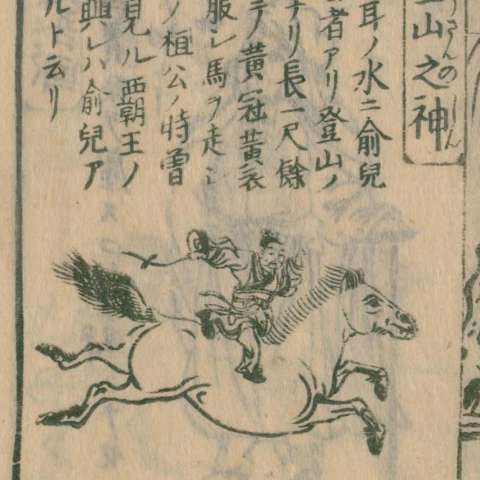 山之神
うさんのしん
耳ノ水ニ俞兒
者アリ登山ノ
ナリ長一尺餘
テ黄冠黄衣
服シ馬ヲ走シ
ノ桓公ノ時曽
見ル覇王ノ
興レハ俞兒ア
ルト云リ